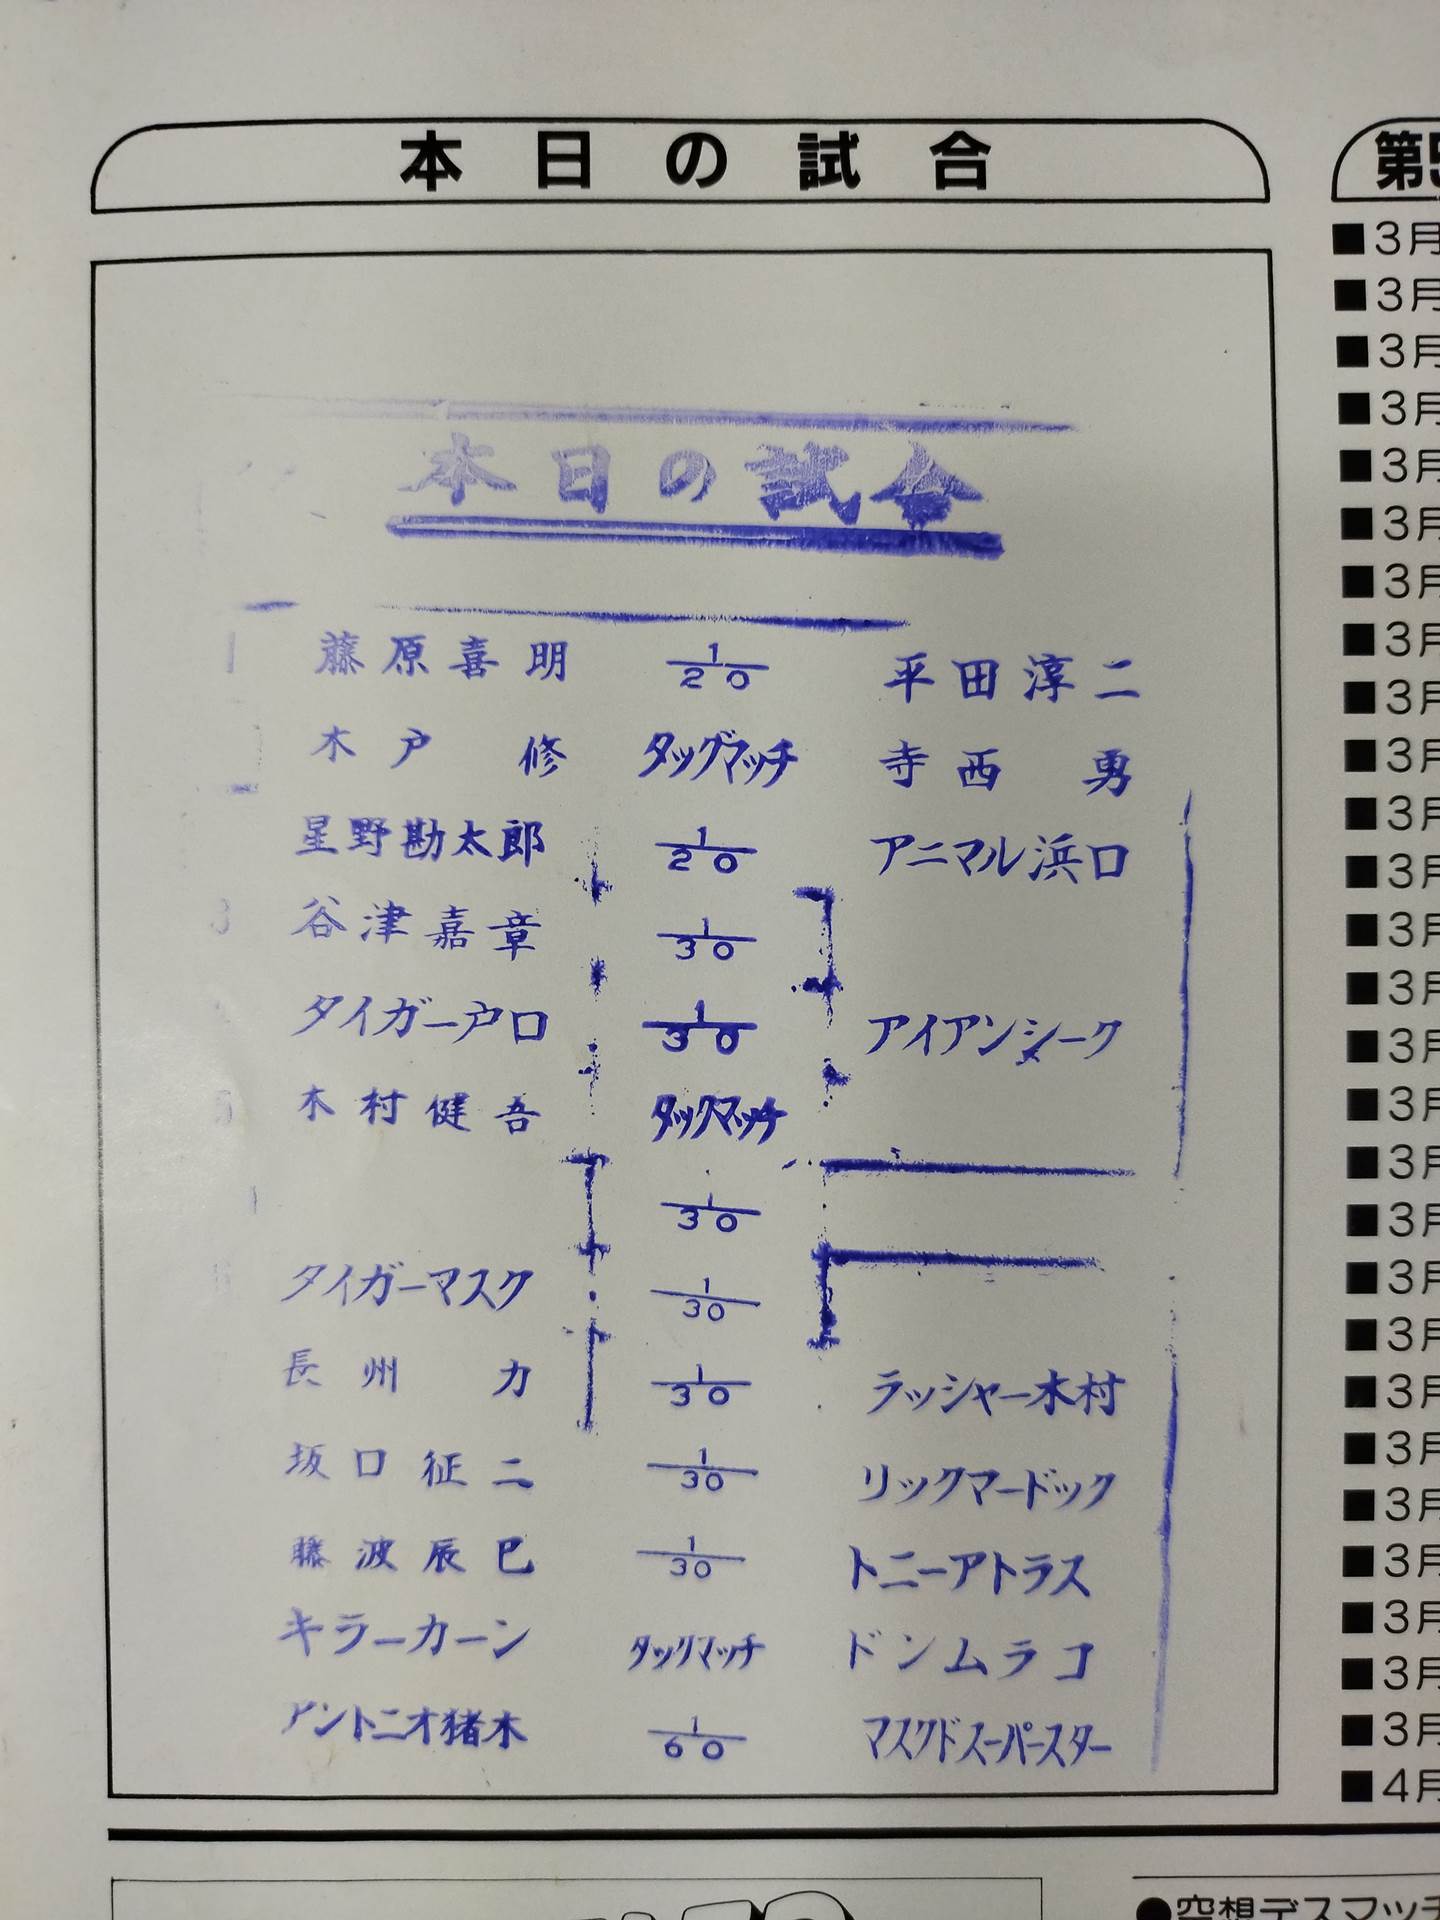 本日の試合
本日の試合
藤原喜明 1/20 平田淳二
木戸修 タッグマッチ 寺西勇
星野勘太郎 1/20 アニマル浜口
谷津嘉章 1/30
タイガー戸口 1/30 アイアンシーク
木村健吾 タックマッチ
1/30
タイガーマスク 1/30
長州力 1/30 ラッシャー木村
坂口征二 1/30 リックマードック
藤波辰巳 1/30 トニーアトラス
キラーカーン タックマッチ ドンムラコ
アントニオ猪木 1/60 マスクドスーパースター
第5
■3月
■3月
■3月
■3月
■3月
■3月
■3月
■3月
■3月
■3月
■3月
■3月
■3月
■3月
■3月
■3月
■3月
■3月
■3月
■3月
■3月
■3月
■3月
■3月
■3月
■3月
■3月
■4月
●空想デスマッチ